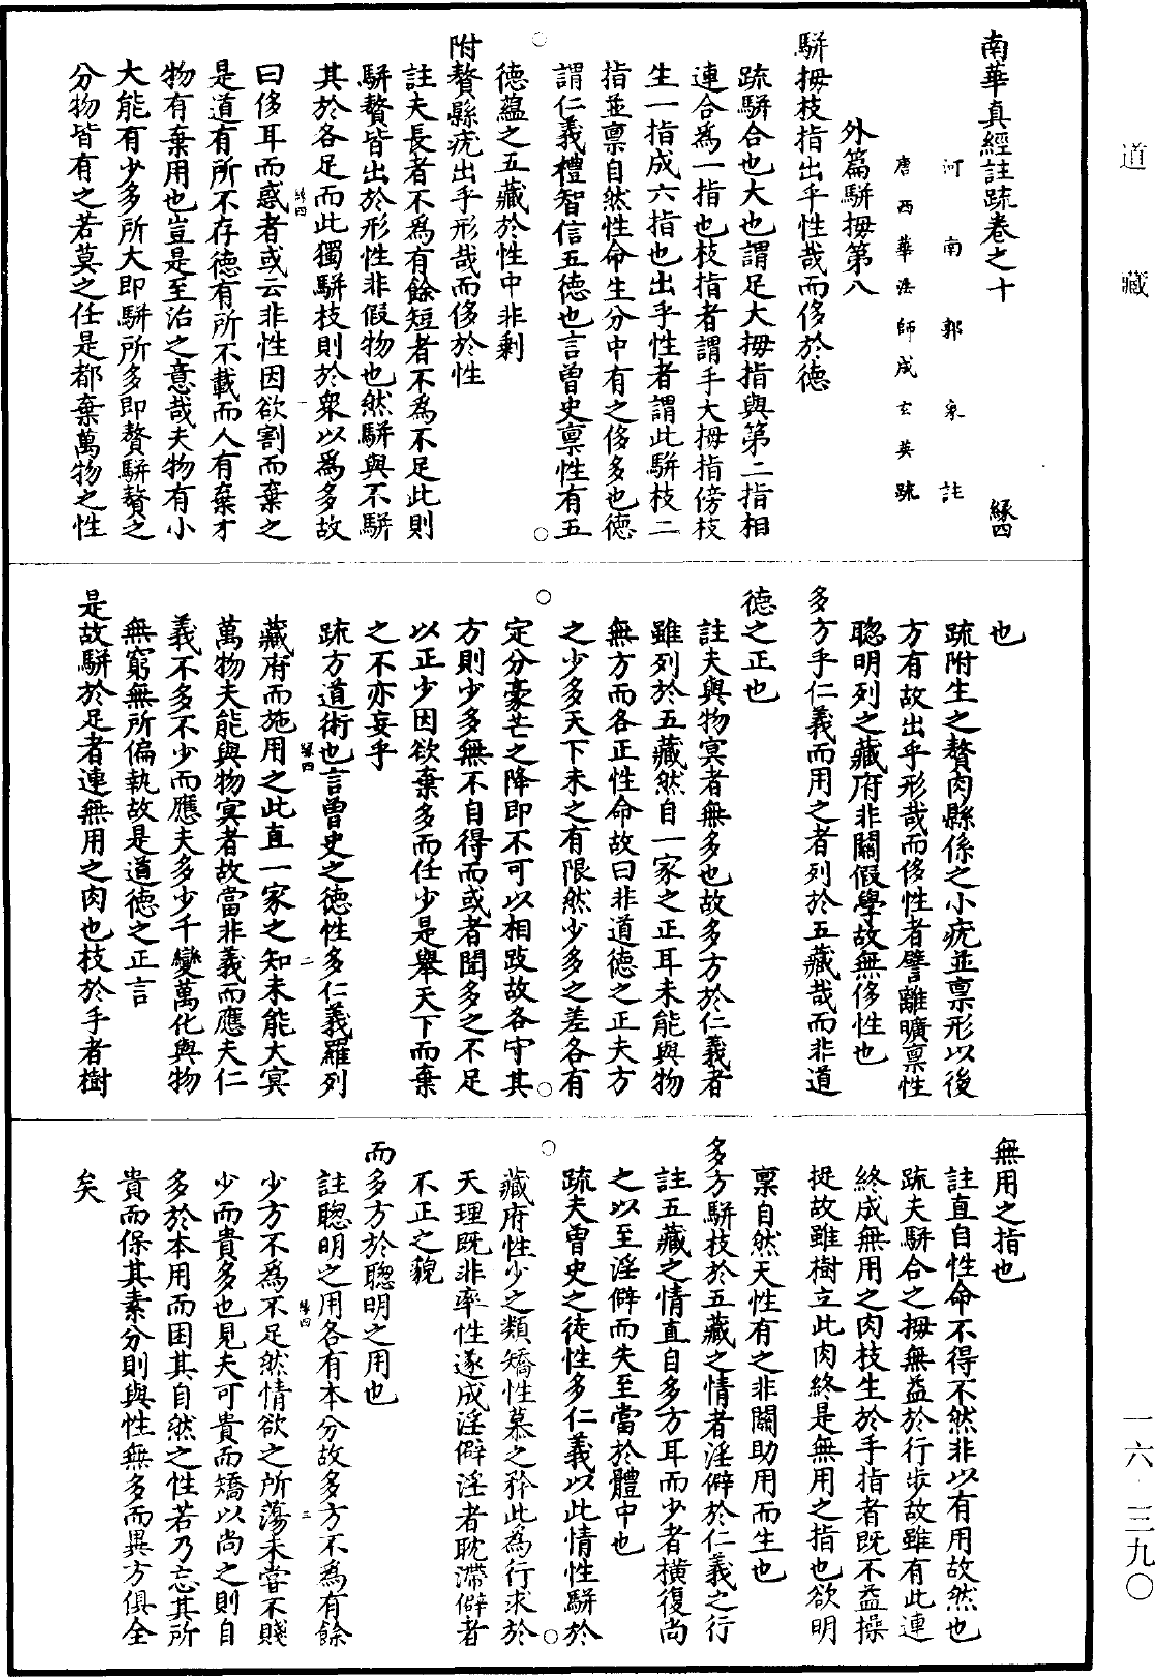 南華真經註疏卷之十 縁四
河南郭象註
唐西華法師成玄英疏
外篇駢拇第八
駢拇枝指出乎性哉而侈於德
疏駢合也大也謂足大拇指與第二指相
連合為一指也枝指者謂手大拇指傍枝
生一指成六指也出乎性者謂此駢枝二
指並稟自然性命生分中有之侈多也德
謂仁義禮智信五德也言曾史稟性有五
德蘊之五藏於性中非剩
附贅縣疣出乎形哉而侈於性
註夫長者不為有餘短者不為不足此則
駢贅皆出於形性非假物也然駢與不駢
其於各足而此獨駢枝則於衆以為多故
曰侈耳而惑者或云非性因欲割而棄之
是道有所不存德有所不載而人有棄才
物有棄用也豈是至治之意哉夫物有小
大能有少多所大即駢所多即贅駢贅之
分物皆有之若莫之任是都棄萬物之性
縁四
一
也
疏附生之贅肉縣係之小疣並稟形以後
方有故出乎形哉而侈性者譬離曠稟性
聦明列之藏府非關假學故無侈性也
多方乎仁義而用之者列於五藏哉而非道
德之正也
註夫與物冥者無多也故多方於仁義者
雖列於五藏然自一家之正耳未能與物
無方而各正性命故曰非道德之正夫方
之少多天下未之有限然少多之差各有
定分豪芒之降即不可以相跂故各守其
方則少多無不自得而或者聞多之不足
以正少因欲棄多而任少是舉天下而棄
之不亦妄乎
疏方道術也言曾史之德性多仁義羅列
藏府而施用之此直一家之知未能大冥
萬物夫能與物冥者故當非義而應夫仁
義不多不少而應夫多少千變萬化與物
無窮無所偏執故是道德之正言
是故駢於足者連無用之肉也枝於手者樹
縁四
二
無用之指也
註直自性命不得不然非以有用故然也
疏夫駢合之拇無益於行步故雖有此連
終成無用之肉枝生於手指者既不益操
捉故雖樹立此肉終是無用之指也欲明
稟自然天性有之非關助用而生也
多方駢枝於五藏之情者淫僻於仁義之行
註五藏之情直自多方耳而少者横復尚
之以至淫僻而失至當於體中也
疏夫曾史之徒性多仁義以此情性駢於
藏府性少之類矯性慕之矜此為行求於
天理既非率性遂成淫僻淫者耽滯僻者
不正之貌
而多方於聦明之用也
註聦明之用各有本分故多方不為有餘
少方不為不足然情欲之所蕩未嘗不賤
少而貴多也見夫可貴而矯以尚之則自
多於本用而困其自然之性若乃忘其所
貴而保其素分則與性無多而異方俱全
矣
縁四
三
道藏
一六·三九〇